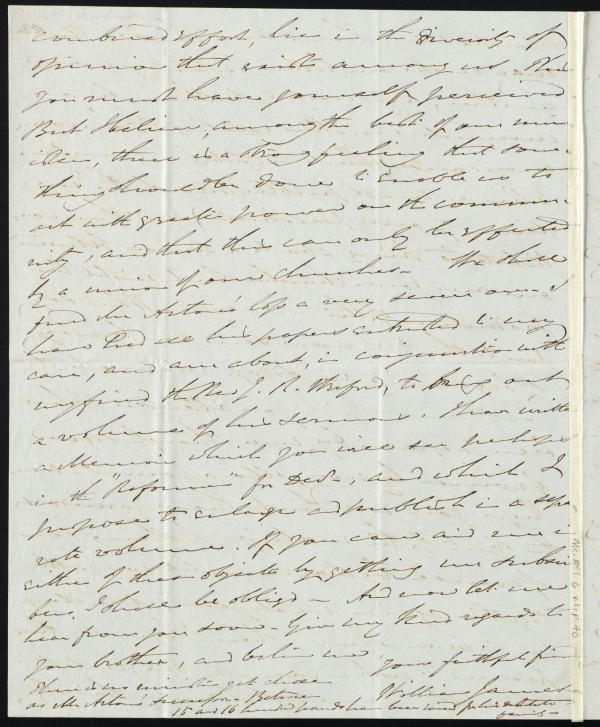 combined effort, lies in the diversity of
opinion that exists among us. This
you must have yourself perceived
But I believe, among the best of our mini-
sters, there is a strong feeling that some-
thing should be done to enable us to
act with greater power on the commu-
nity, and that this can only be effected
by a union of our churches - We shall
find Mr Acton's loss a very severe one - I
have had all his papers entrusted to my
care, and am about, in conjunction with
my friend the Rev J. R. Wreford, to bring out
a volume of his sermons. I have written
a Memoir which you will see perhaps
in the "Reformer" for Decr, and which I
propose to enlarge and publish in a sepa
rate volume. If you can aid me in
either of these objects by getting me subscri
bers I shall be obliged - And now let me
hear from you soon - Give my kind regards to
your brother, and believe me
your faithful
There is no minister yet chosen
William James
as Mr Acton's successor Between
15 and 16 hundred pounds have been
Ms.B.1.6 v.1, p.40